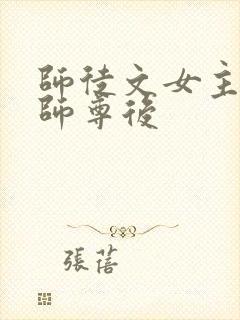 師徒文女主
師尊後
張蓓